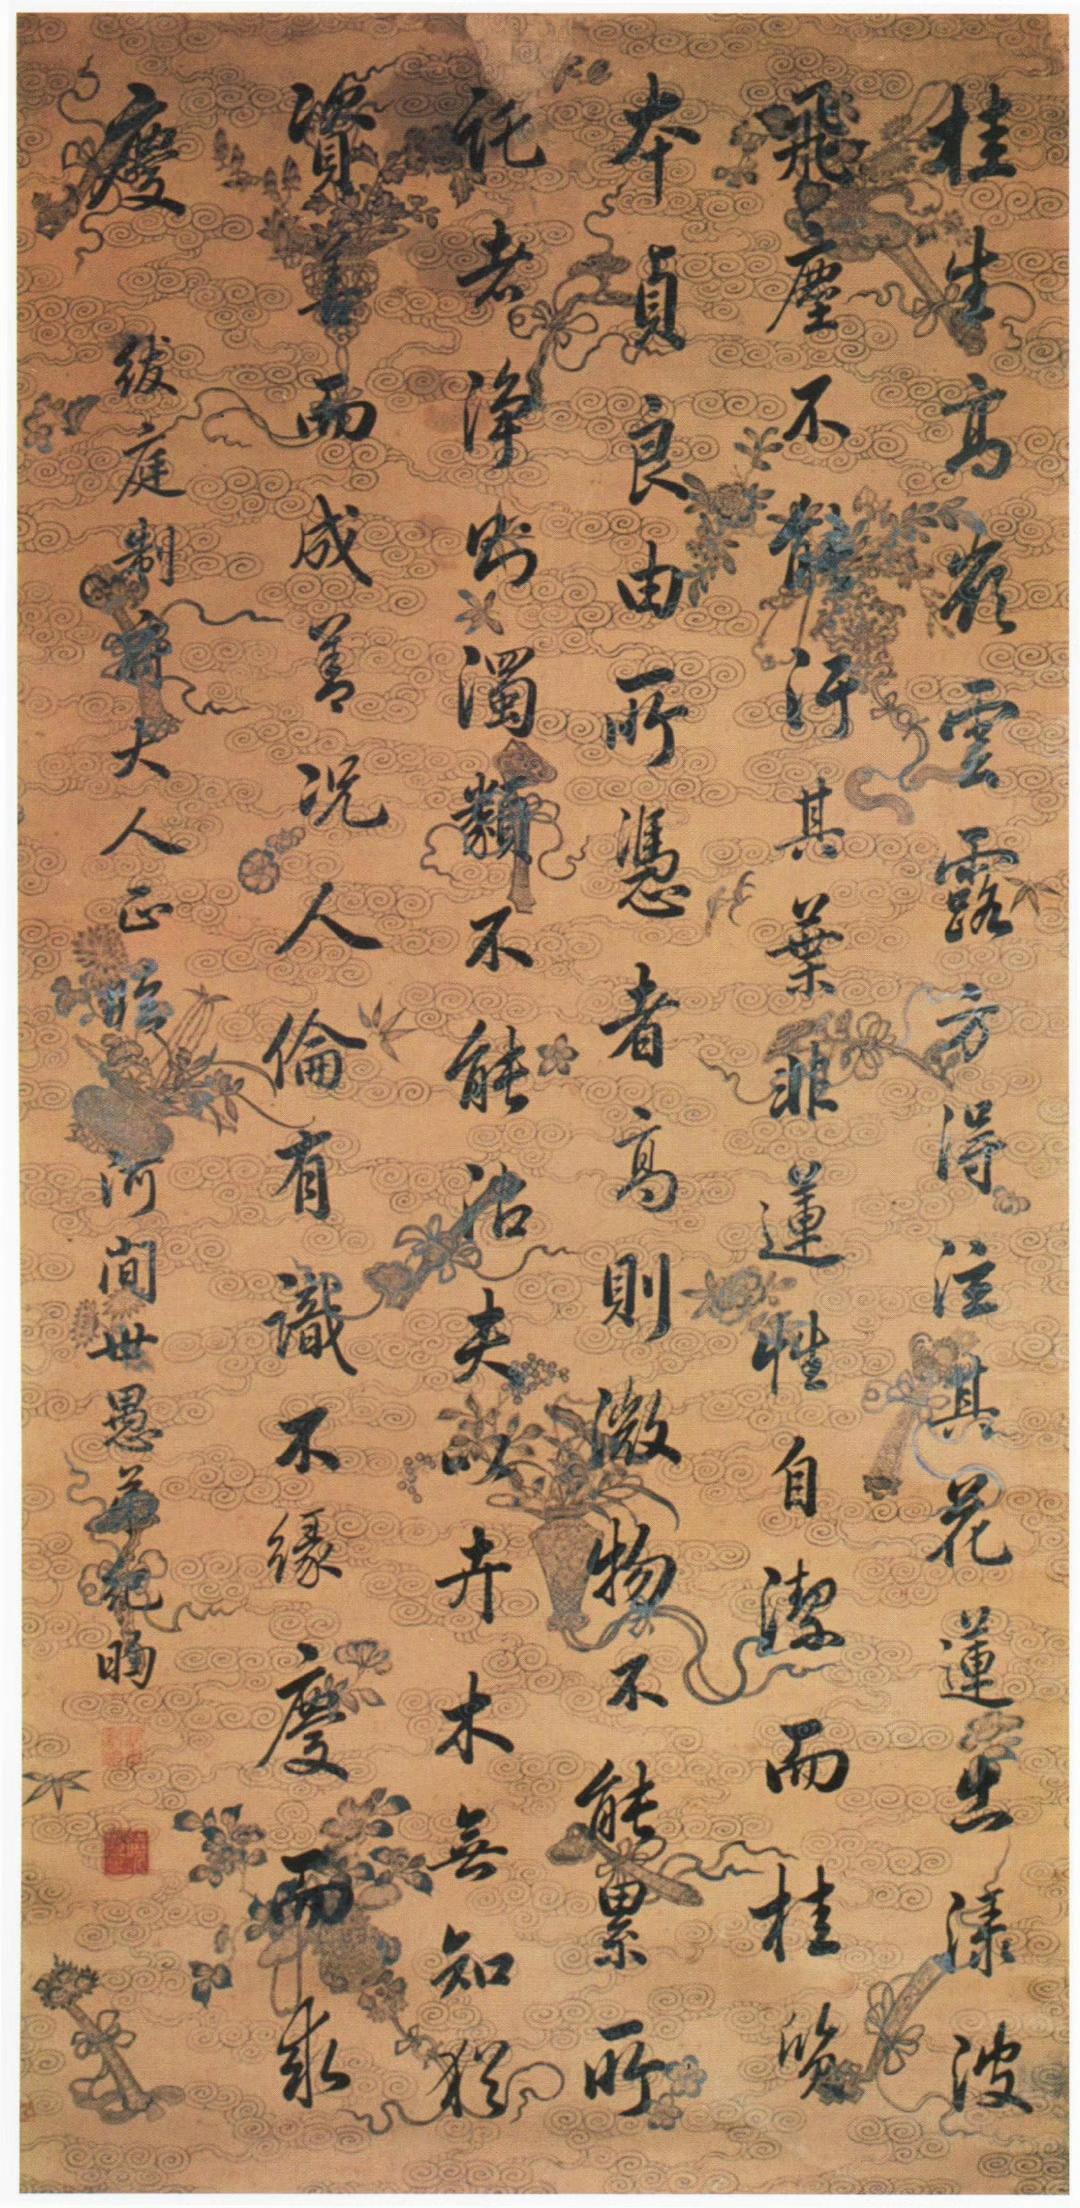 桂生高嶺雲露方得泫其花蓮出淥波
飛塵不能汙其葉非蓮性自潔而桂質
本貞良由所憑者高則微物不能累所
託者淨則濁類不能沾夫以卉木無知猶
資善而成善況人倫有識不緣慶而求
慶 紱庭制大人正 河間世愚弟紀昀